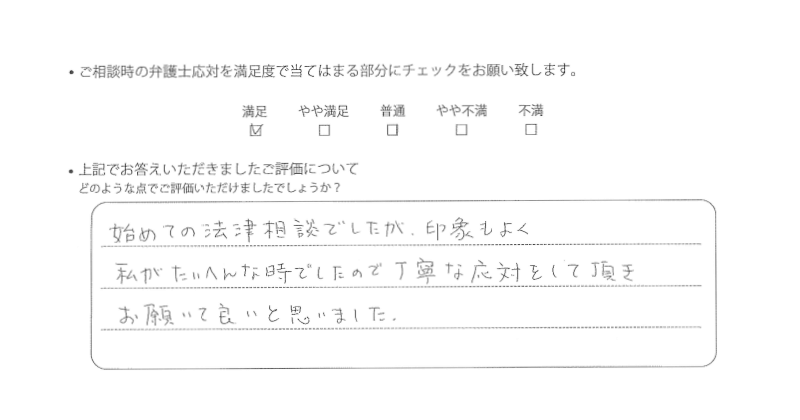 ・ご相談時の弁護士応対を満足度で当てはまる部分にチェックをお願い致します。
満足 やや満足 普通 やや不満 不満
☑ ☐ ☐ ☐ ☐
・上記でお答えいただきましたご評価について
どのような点でご評価いただけましたでしょうか？
始めての法津相談でしたが、印象もよく
私がたいへんな時でしたので丁寧な応対をして頂き
お願いて良いと思いました.